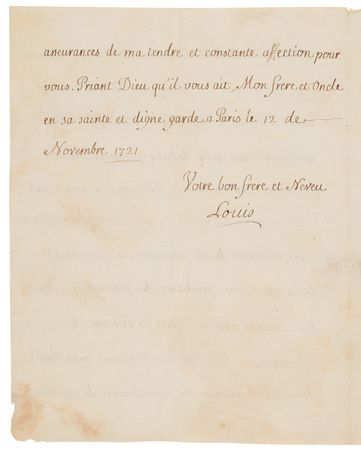 asseurances de ma tendre et constante affection pour
vous. Priant Dieu qu'il vous ait, Mon frere et Oncle
en sa sainte et digne garde. a Paris le 12 de
Novembre 1721
Votre bon frere et Neveu
Louis